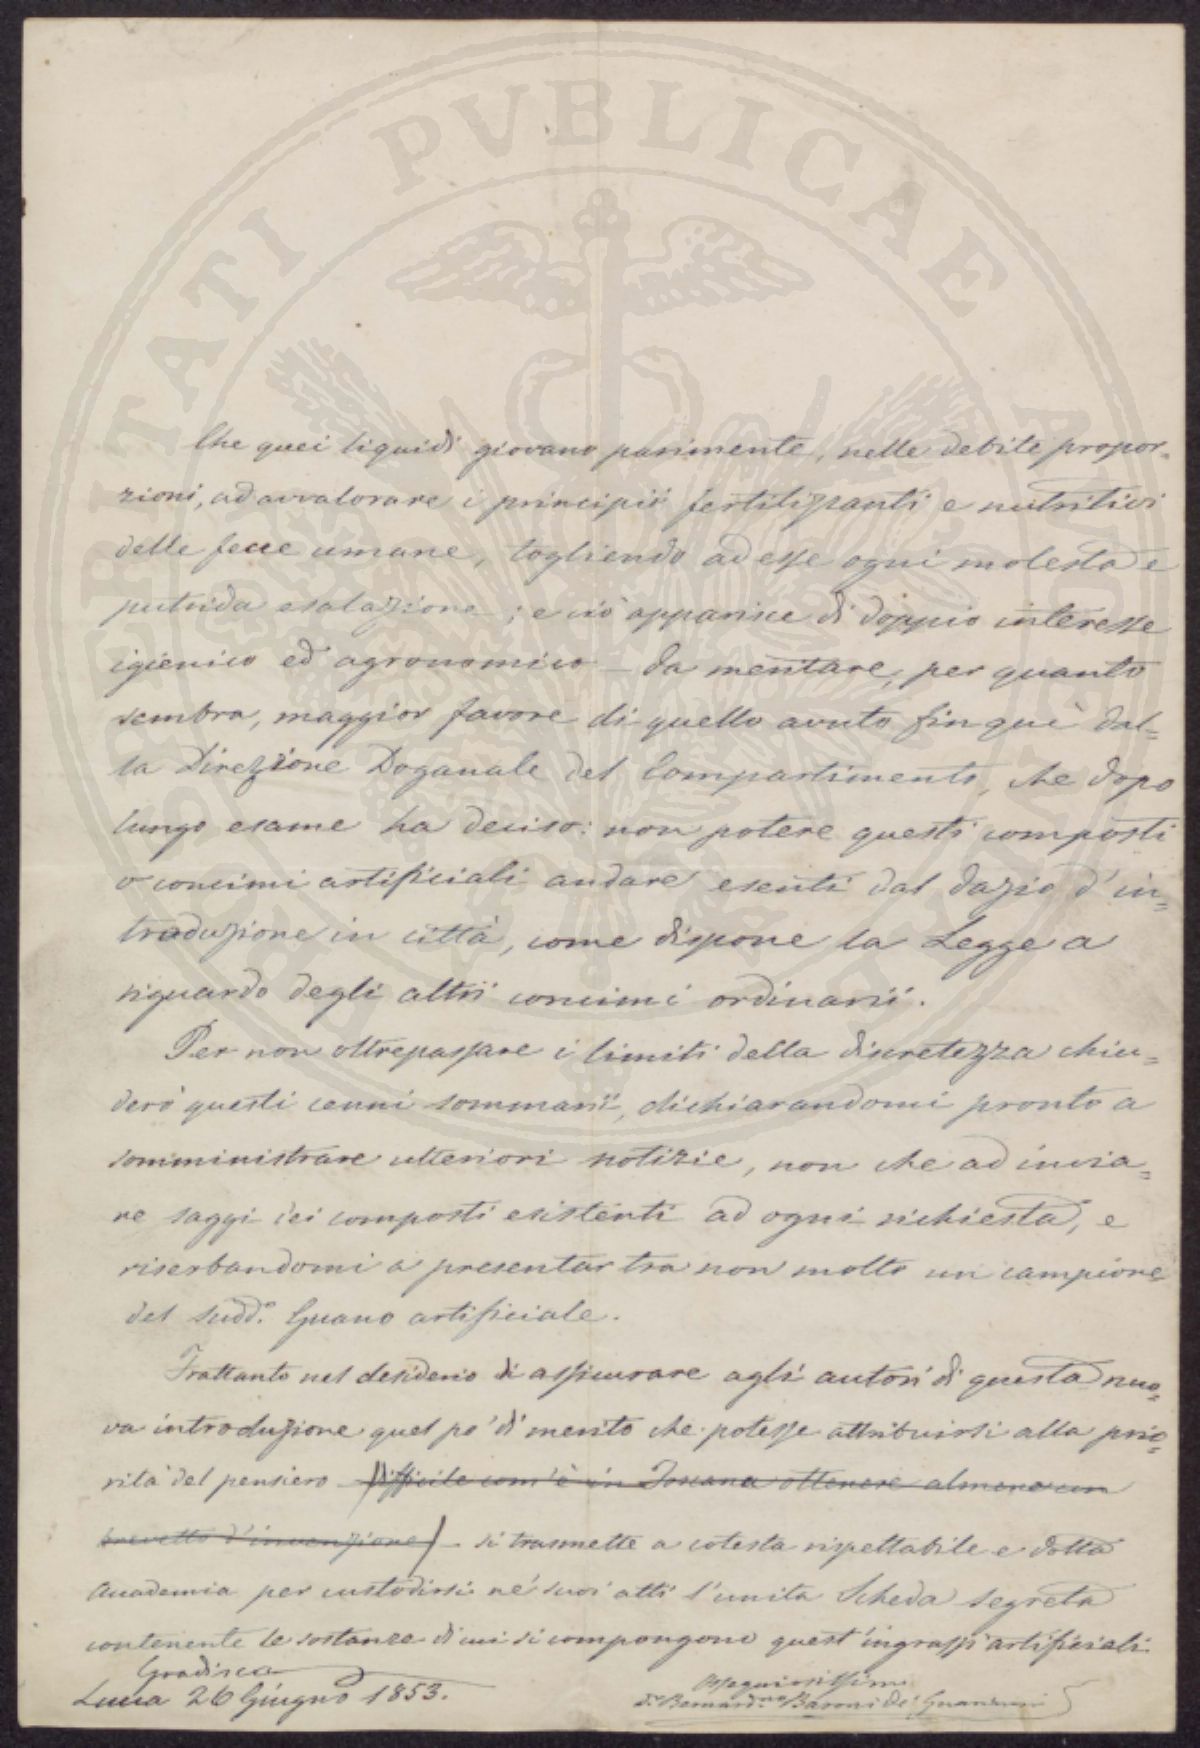 Che quei liquidi giovano parimente, nelle debite propor=
zioni, ad avvalorare i principii fertilizzanti e nutritivi
delle fecce umane, togliendo ad esse ogni molesta e
putrida esalazione; e ciò apparisce di doppio interesse
igienico ed agronomico — da meritare, per quanto
sembra, maggior favore di quello avuto fin quì dal=
la Direzione Doganale del Compartimento, che dopo
lungo esame ha deciso: non potere questi composti
o concimi artificiali andare esenti dal dazio d'in=
troduzione in città, come dispone la Legge a
riguardo degli altri concimi ordinarii.
Per non oltrepassare i limiti della discretezza chiu=
derò questi cenni sommarii, dichiarandomi pronto a
somministrare ulteriori notizie, non che ad invia=
re saggi dei composti esistenti ad ogni richiesta, e
riserbandomi a presentar tra non molto un campione
del sudd.º Guano artificiale.
Frattanto nel desiderio di assicurare agli autori di questa nuo=
va introduzione quel po' di merito che potesse attribuirsi alla prio=
rità del pensiero — (difficile com'è in Toscana ottenere almeno un
brevetto d'invenzione) — si trasmette a cotesta rispettabile e dotta
Accademia per custodirsi ne' suoi atti l'unita Scheda segreta
contenente le sostanze di cui si compongono quest'ingrassi artificiali.
Gradisca
Lucca 26 Giugno 1853.
Ossequiosissimo
D.r Bernard.no Baroni de'
PVBLICAE